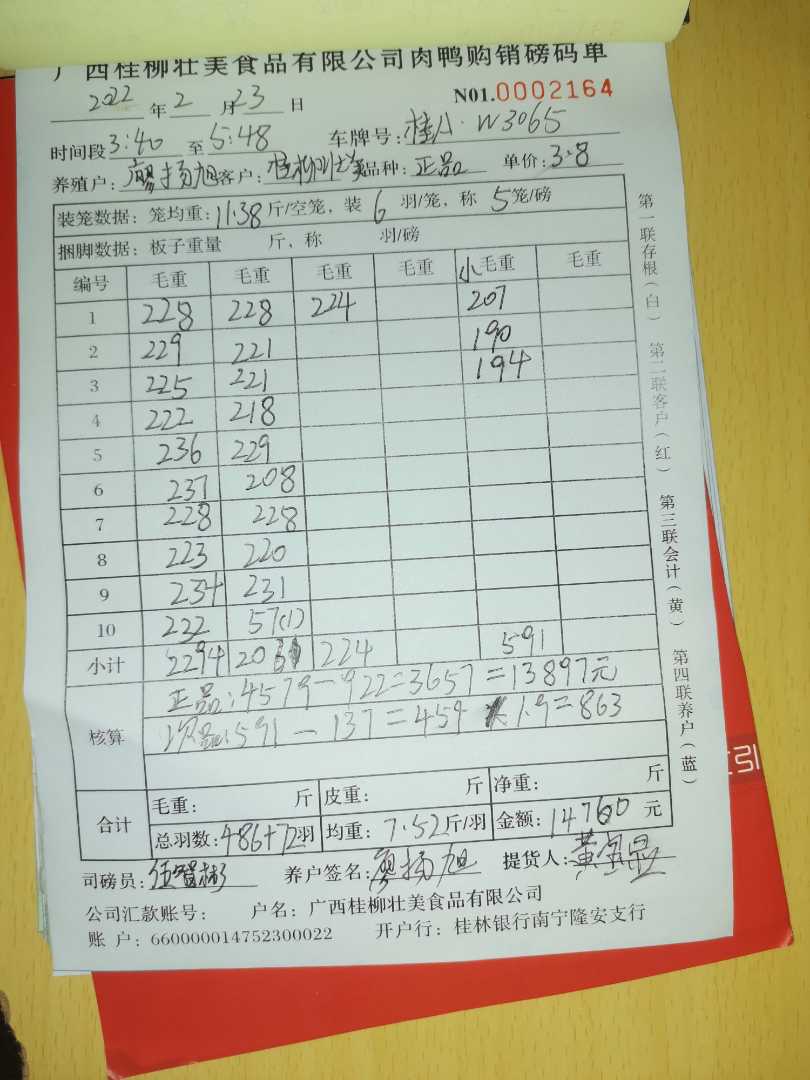 广西桂柳壮美食品有限公司肉鸭购销磅码单
2022 年 2 月 23 日 N01.0002164
时间段 3:40 至 5:48 车牌号: W3065
养殖户: 廖扬旭 客户: 桂柳壮美 品种: 正品 单价: 3.8
装笼数据: 笼均重: 11.38 斤/空笼, 装 6 羽/笼, 称 5 笼/磅
捆脚数据: 板子重量 斤, 称 羽/磅
编号 毛重 毛重 毛重 毛重 小毛重 毛重
1 228 228 224 207
2 229 221 190
3 225 221 194
4 222 218
5 236 229
6 237 208
7 228 228
8 223 220
9 234 231
10 232 57(1)
小计 2294 224 591
核算 正品:4579-922=3657=13897元
次品:591-137=459 ×1.9=863
合计 毛重: 斤 皮重: 斤 净重: 斤
总羽数: 486+72羽 均重: 7.52斤/羽 金额: 14760 元
司磅员: 养户签名: 廖扬旭 提货人:
公司汇款账号: 户名: 广西桂柳壮美食品有限公司
账 户: 660000014752300022 开户行: 桂林银行南宁隆安支行
第一联存根(白) 第二联客户(红) 第三联会计(黄) 第四联养户(蓝)